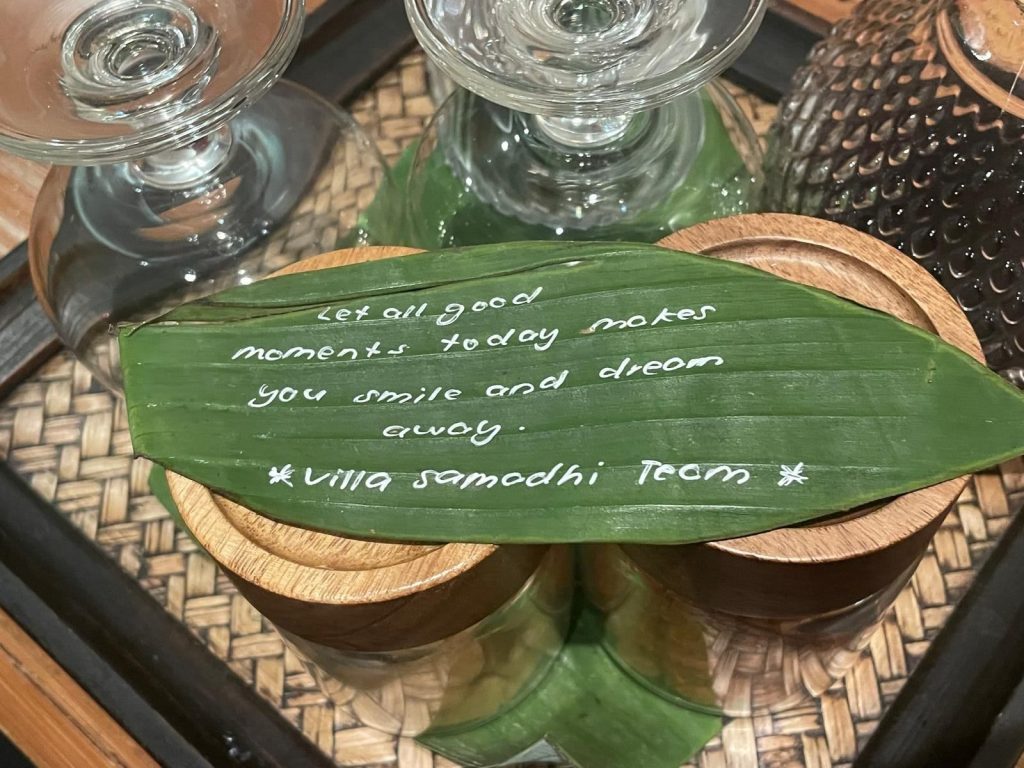 Let all good
moments today makes
you smile and dream
away.
*Villa Samadhi Team *